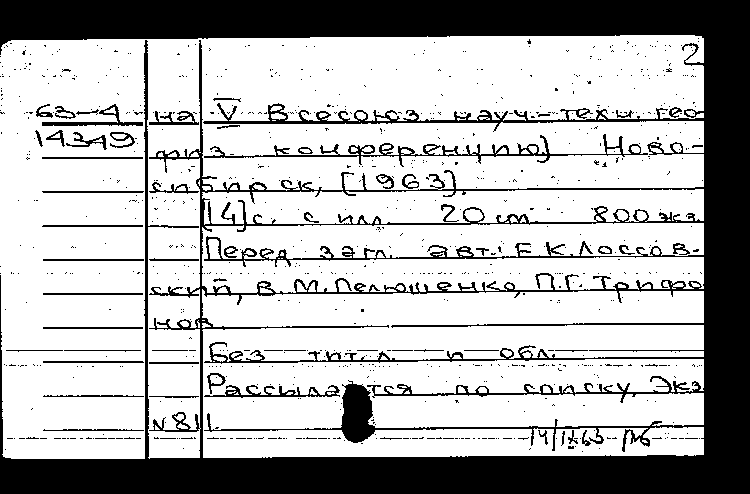 2
63-4 на V Всесоюз. науч.-техн. гео-
14349 физ. конференцию] Ново-
сибирск, [1963].
[14] с. с илл. 20 см. 800 экз.
Перед загл. авт.: Е.К. Лоссов-
ский, В.М. Пелюшенко, П.Г. Трифо-
нов.
Без тит. л. и обл.
Рассылается по списку. Экз.
№ 811.